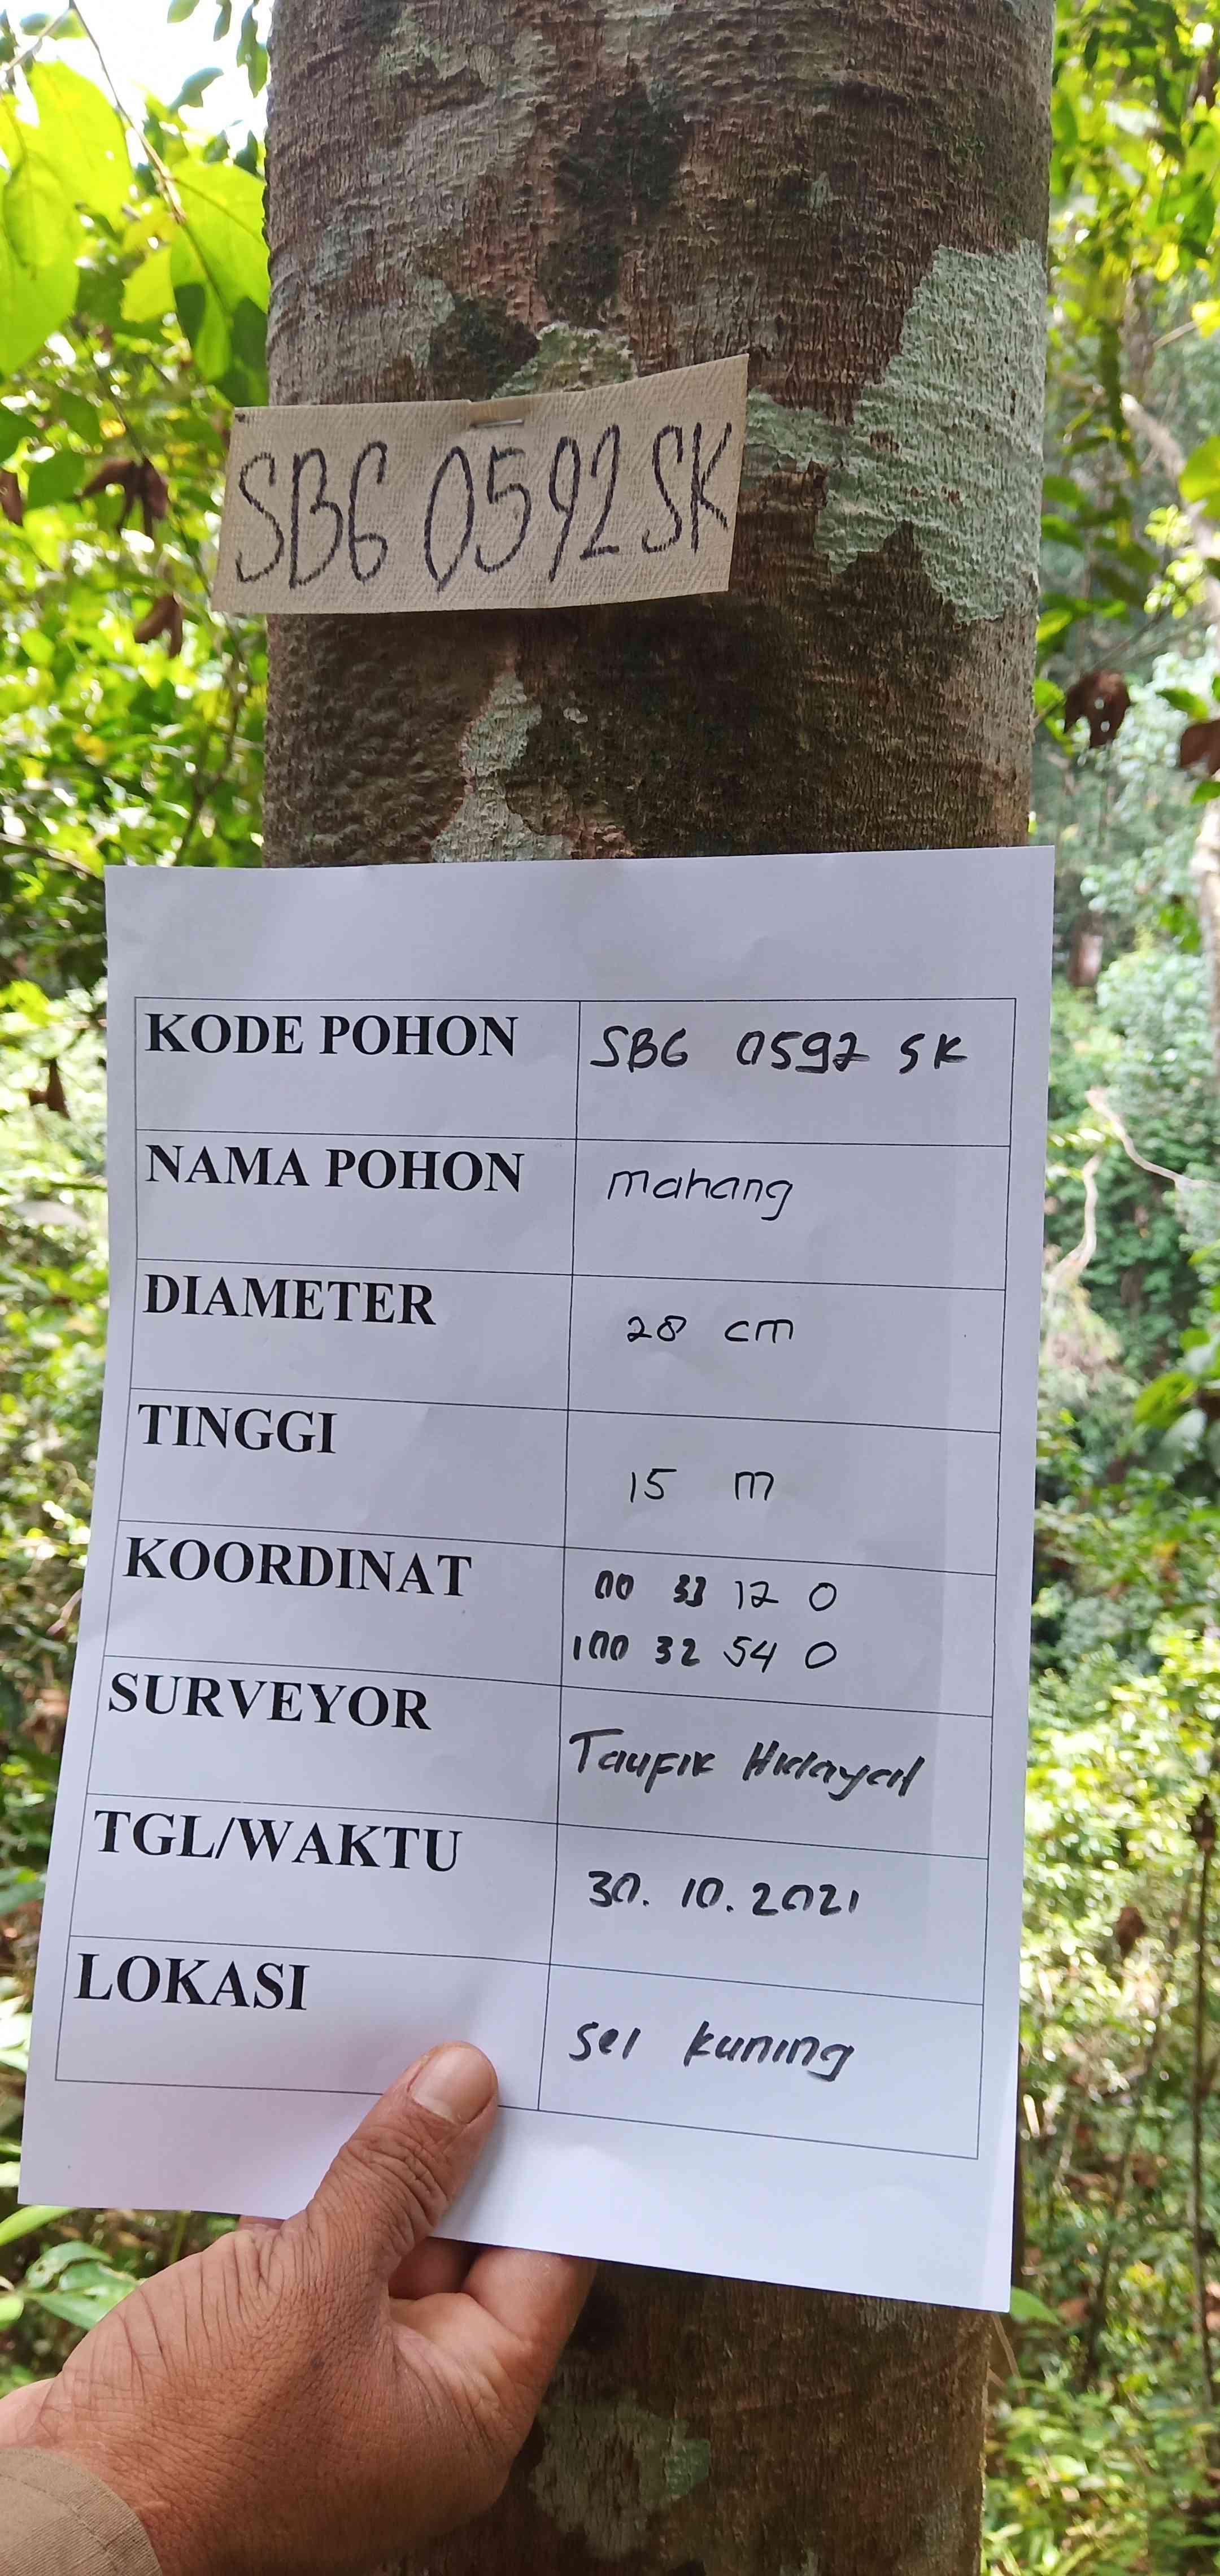 SBG 0592 SK
KODE POHON SBG 0592 SK
NAMA POHON mahang
DIAMETER 28 cm
TINGGI 15 m
KOORDINAT 00 33 12 0
100 32 54 0
SURVEYOR Taufik Hidayat
TGL/WAKTU 30. 10. 2021
LOKASI sei kuning